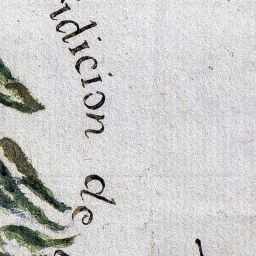 idicion de